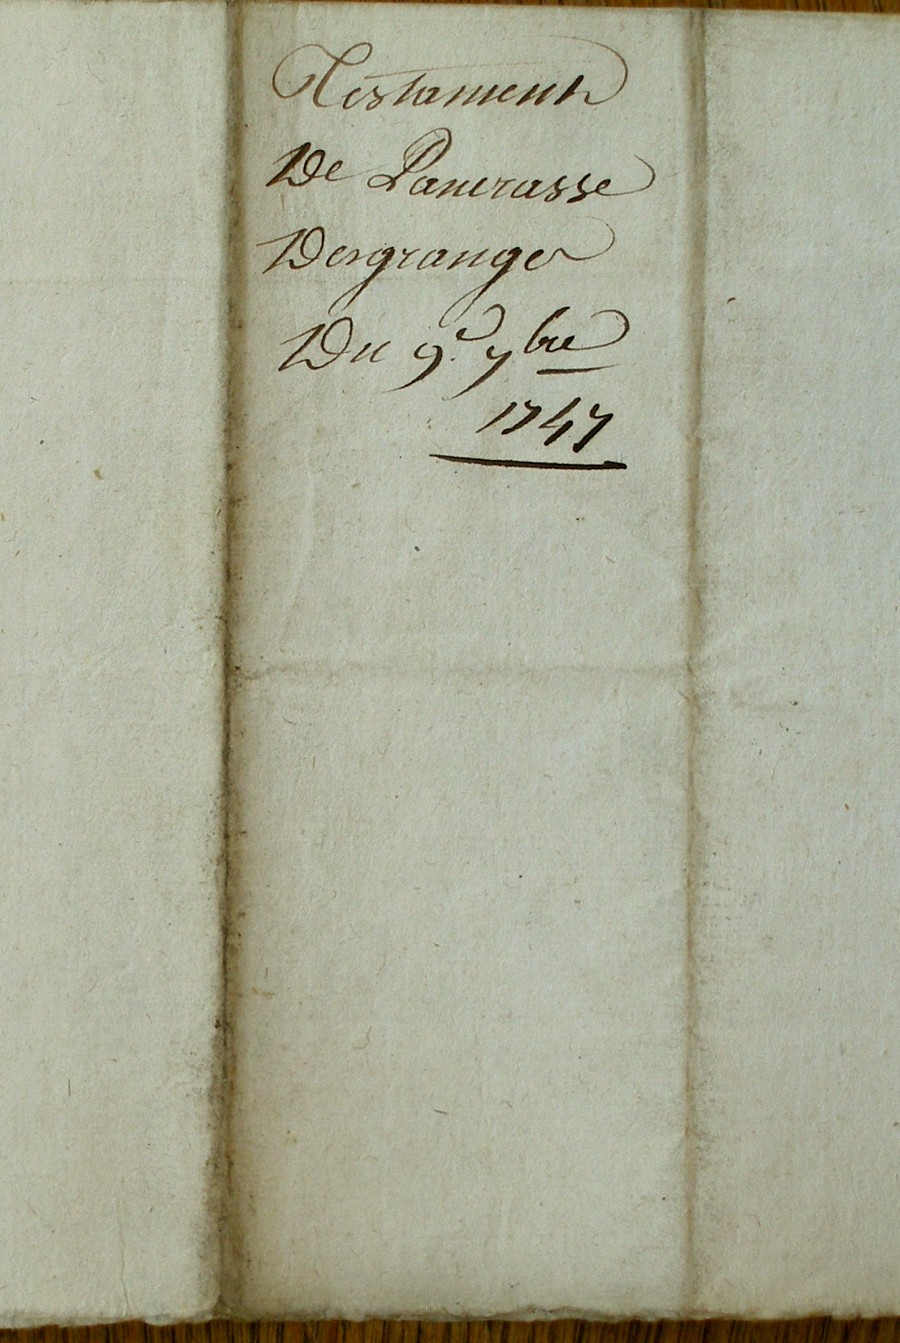 Testament
De Pancrasse
Desgranges
Du 9.e 7bre
1747